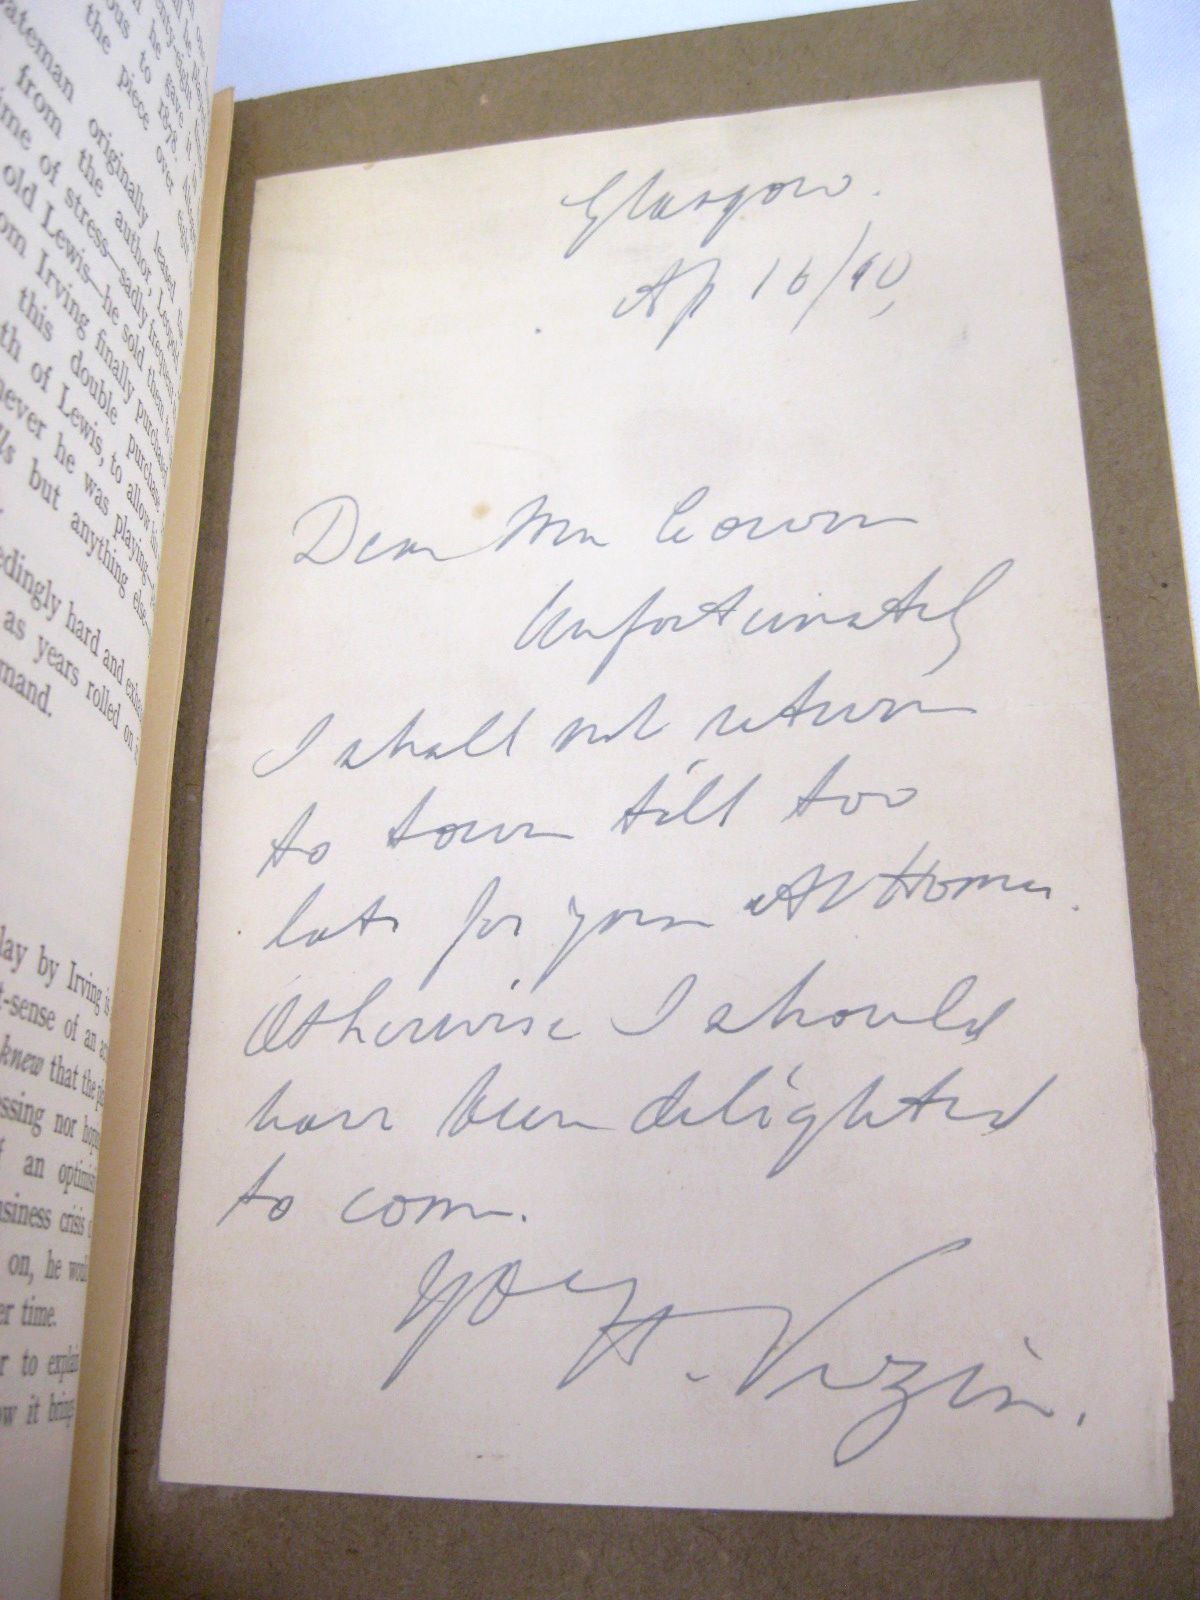 ateman originally leased
from the author, Leopold
time of stress—sadly frequent
old Lewis—he sold them
om Irving finally purchased
this double purchase
th of Lewis, to allow
never he was playing
lls but anything else
edingly hard and
as years rolled on
mand.
lay by Irving is
t-sense of an
knew that the
essing nor
f an
usiness crisis
on, he
er time.
r to explain
ow it brings
Glasgow.
Ap 16/90,
Dear Mr Cowen
Unfortunately
I shall not return
to town till too
late for your At Home.
Otherwise I should
have been delighted
to come.
H. Vezin.